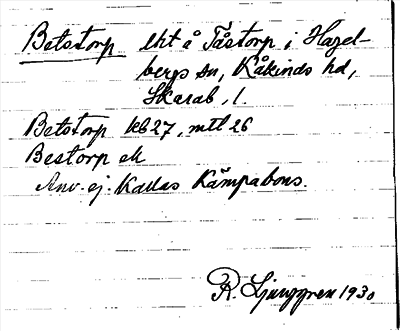 Betstorp lht å Tåstorp i Hagel-
bergs sn, Kåkinds hd,
Skarab. l.
Betstorp kb 27, mtl 26
Bestorp ek
Anv. ej. Kallas Kämpabons.
R. Ljunggren 1930